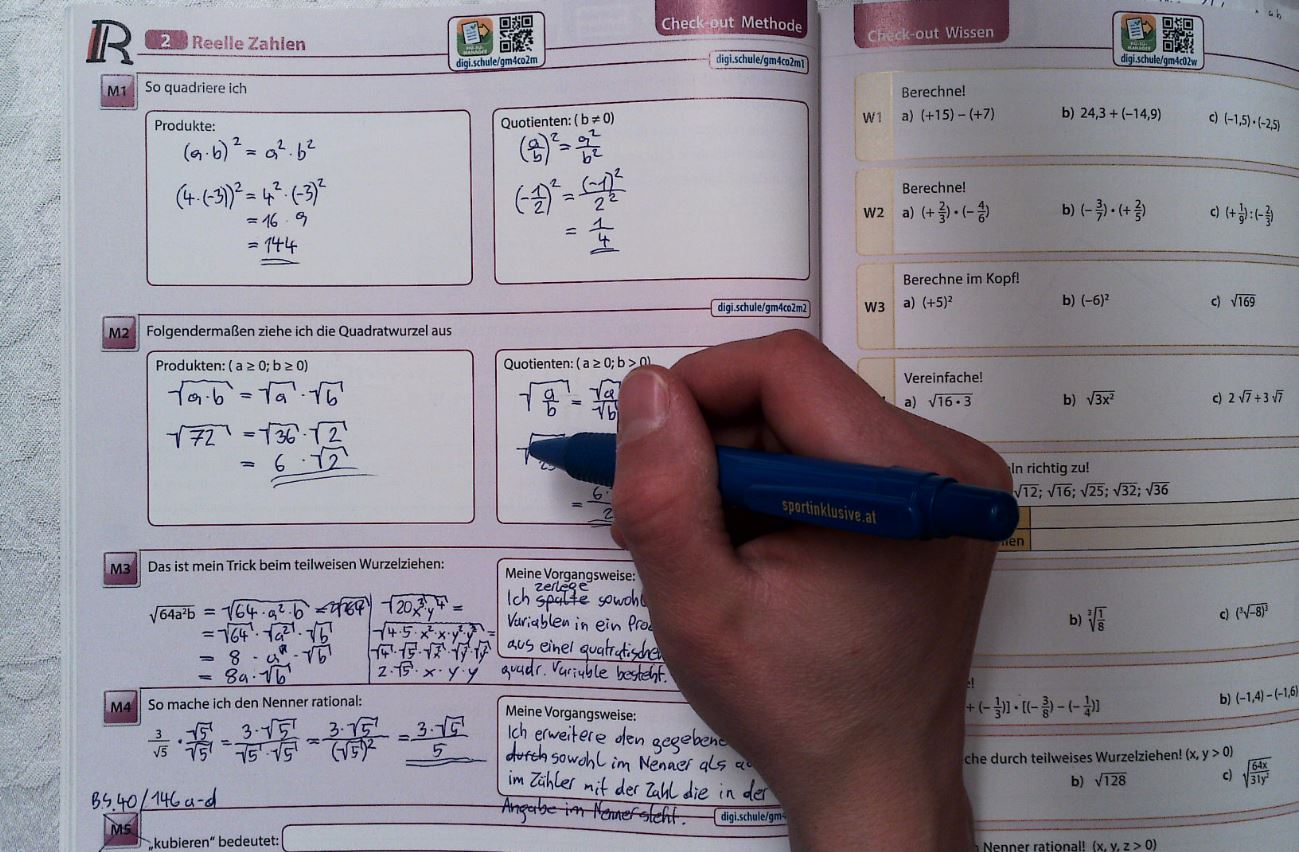 2 Reelle Zahlen
digi.schule/gm4co2m
Check-out Methode
digi.schule/gm4co2m1
M1 So quadriere ich
Produkte:
(a·b)² = a²·b²
(4·(-3))² = 4²·(-3)²
= 16 · 9
= 144
Quotienten: (b ≠ 0)
(a/b)² = a²/b²
(-1/2)² = (-1)²/2²
= 1/4
digi.schule/gm4co2m2
M2 Folgendermaßen ziehe ich die Quadratwurzel aus
Produkten: (a ≥ 0; b ≥ 0)
√a·b = √a · √b
√72 = √36 · √2
= 6 · √2
Quotienten: (a ≥ 0; b > 0)
√a/b = √a/√b
M3 Das ist mein Trick beim teilweisen Wurzelziehen:
√64a²b = √64·a²·b
= √64 · √a² · √b
= 8 · a · √b
= 8a·√b
√20x³y⁴ =
√4·5·x²·x·y²·y² =
2·√5·x·y·y
Meine Vorgangsweise:
zerlege
Ich spalte sowohl
Variablen in ein
aus einer quatratischen
quadr. Variable besteht.
M4 So mache ich den Nenner rational:
3/√5 · √5/√5 = 3·√5/√5·√5 = 3·√5/(√5)² = 3·√5/5
Meine Vorgangsweise:
Ich erweitere den
durch sowohl im Nenner als
im Zähler mit der Zahl die in der
Angabe im Nenner steht.
B.S.40/146a-d
M5 „kubieren“ bedeutet:
sportinklusive.at
Check-out Wissen
digi.schule/gm4c02w
W1 Berechne!
a) (+15) – (+7) b) 24,3 + (–14,9) c) (–1,5)•(–2,5)
W2 Berechne!
a) (+2/3)•(–4/6) b) (–3/7)•(+2/5) c) (+1/9):(–2/3)
W3 Berechne im Kopf!
a) (+5)² b) (–6)² c) √169
Vereinfache!
a) √16•3 b) √3x² c) 2√7+3√7
richtig zu!
√12; √16; √25; √32; √36
b) ³√1/8 c) (³√–8)³
+ (–1/3)]•[(–3/8) – (–1/4)] b) (–1,4) – (–1,6)
durch teilweises Wurzelziehen! (x, y > 0)
b) √128 c) √64x/31y²
Nenner rational! (x, y, z > 0)